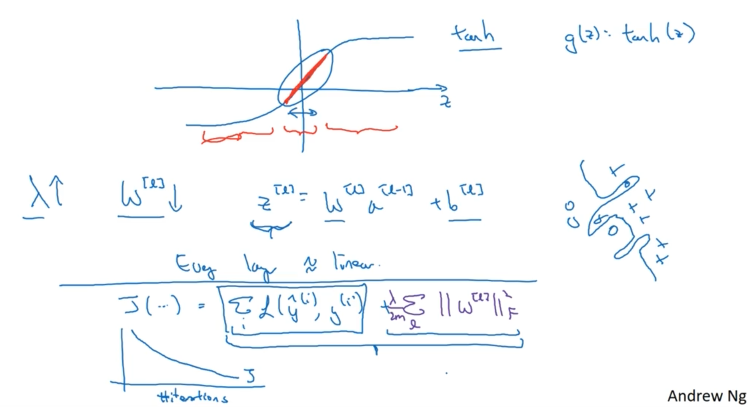 tanh
g(z) = tanh(z)
z
λ↑ W^[l]↓ z^[l] = W^[l] a^[l-1] + b^[l]
Every layer ≈ linear.
J(...) = Σ_i L(ŷ^(i), y^(i)) + λ/2m Σ_l ||W^[l]||²_F
J
#iterations
Andrew Ng